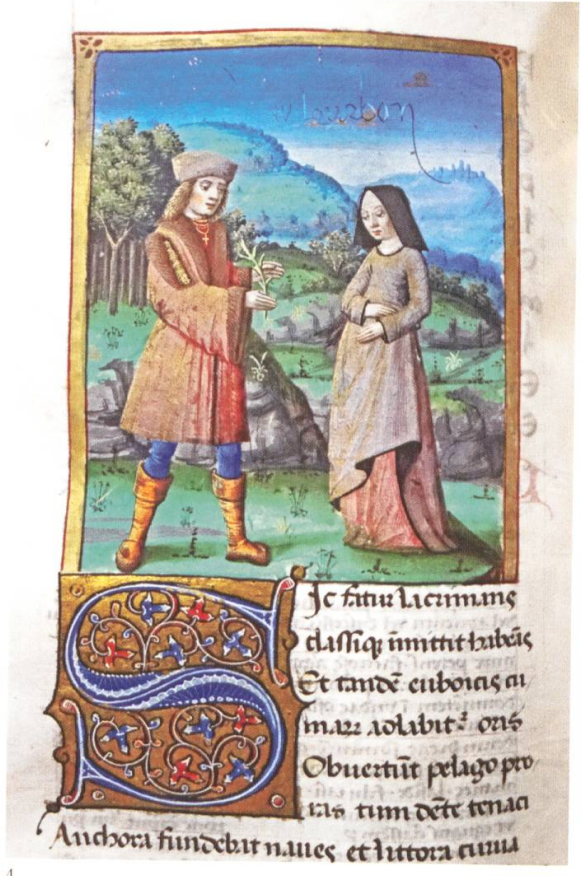 SIc fatur lacrimans
classiq; īmittit habēas
Et tandē euboicis cu
maꝝ adlabit᷑ oris
Obuertūt pelago pro
ras tum dēte tenaci
Anchora fundebat naues et littora curua